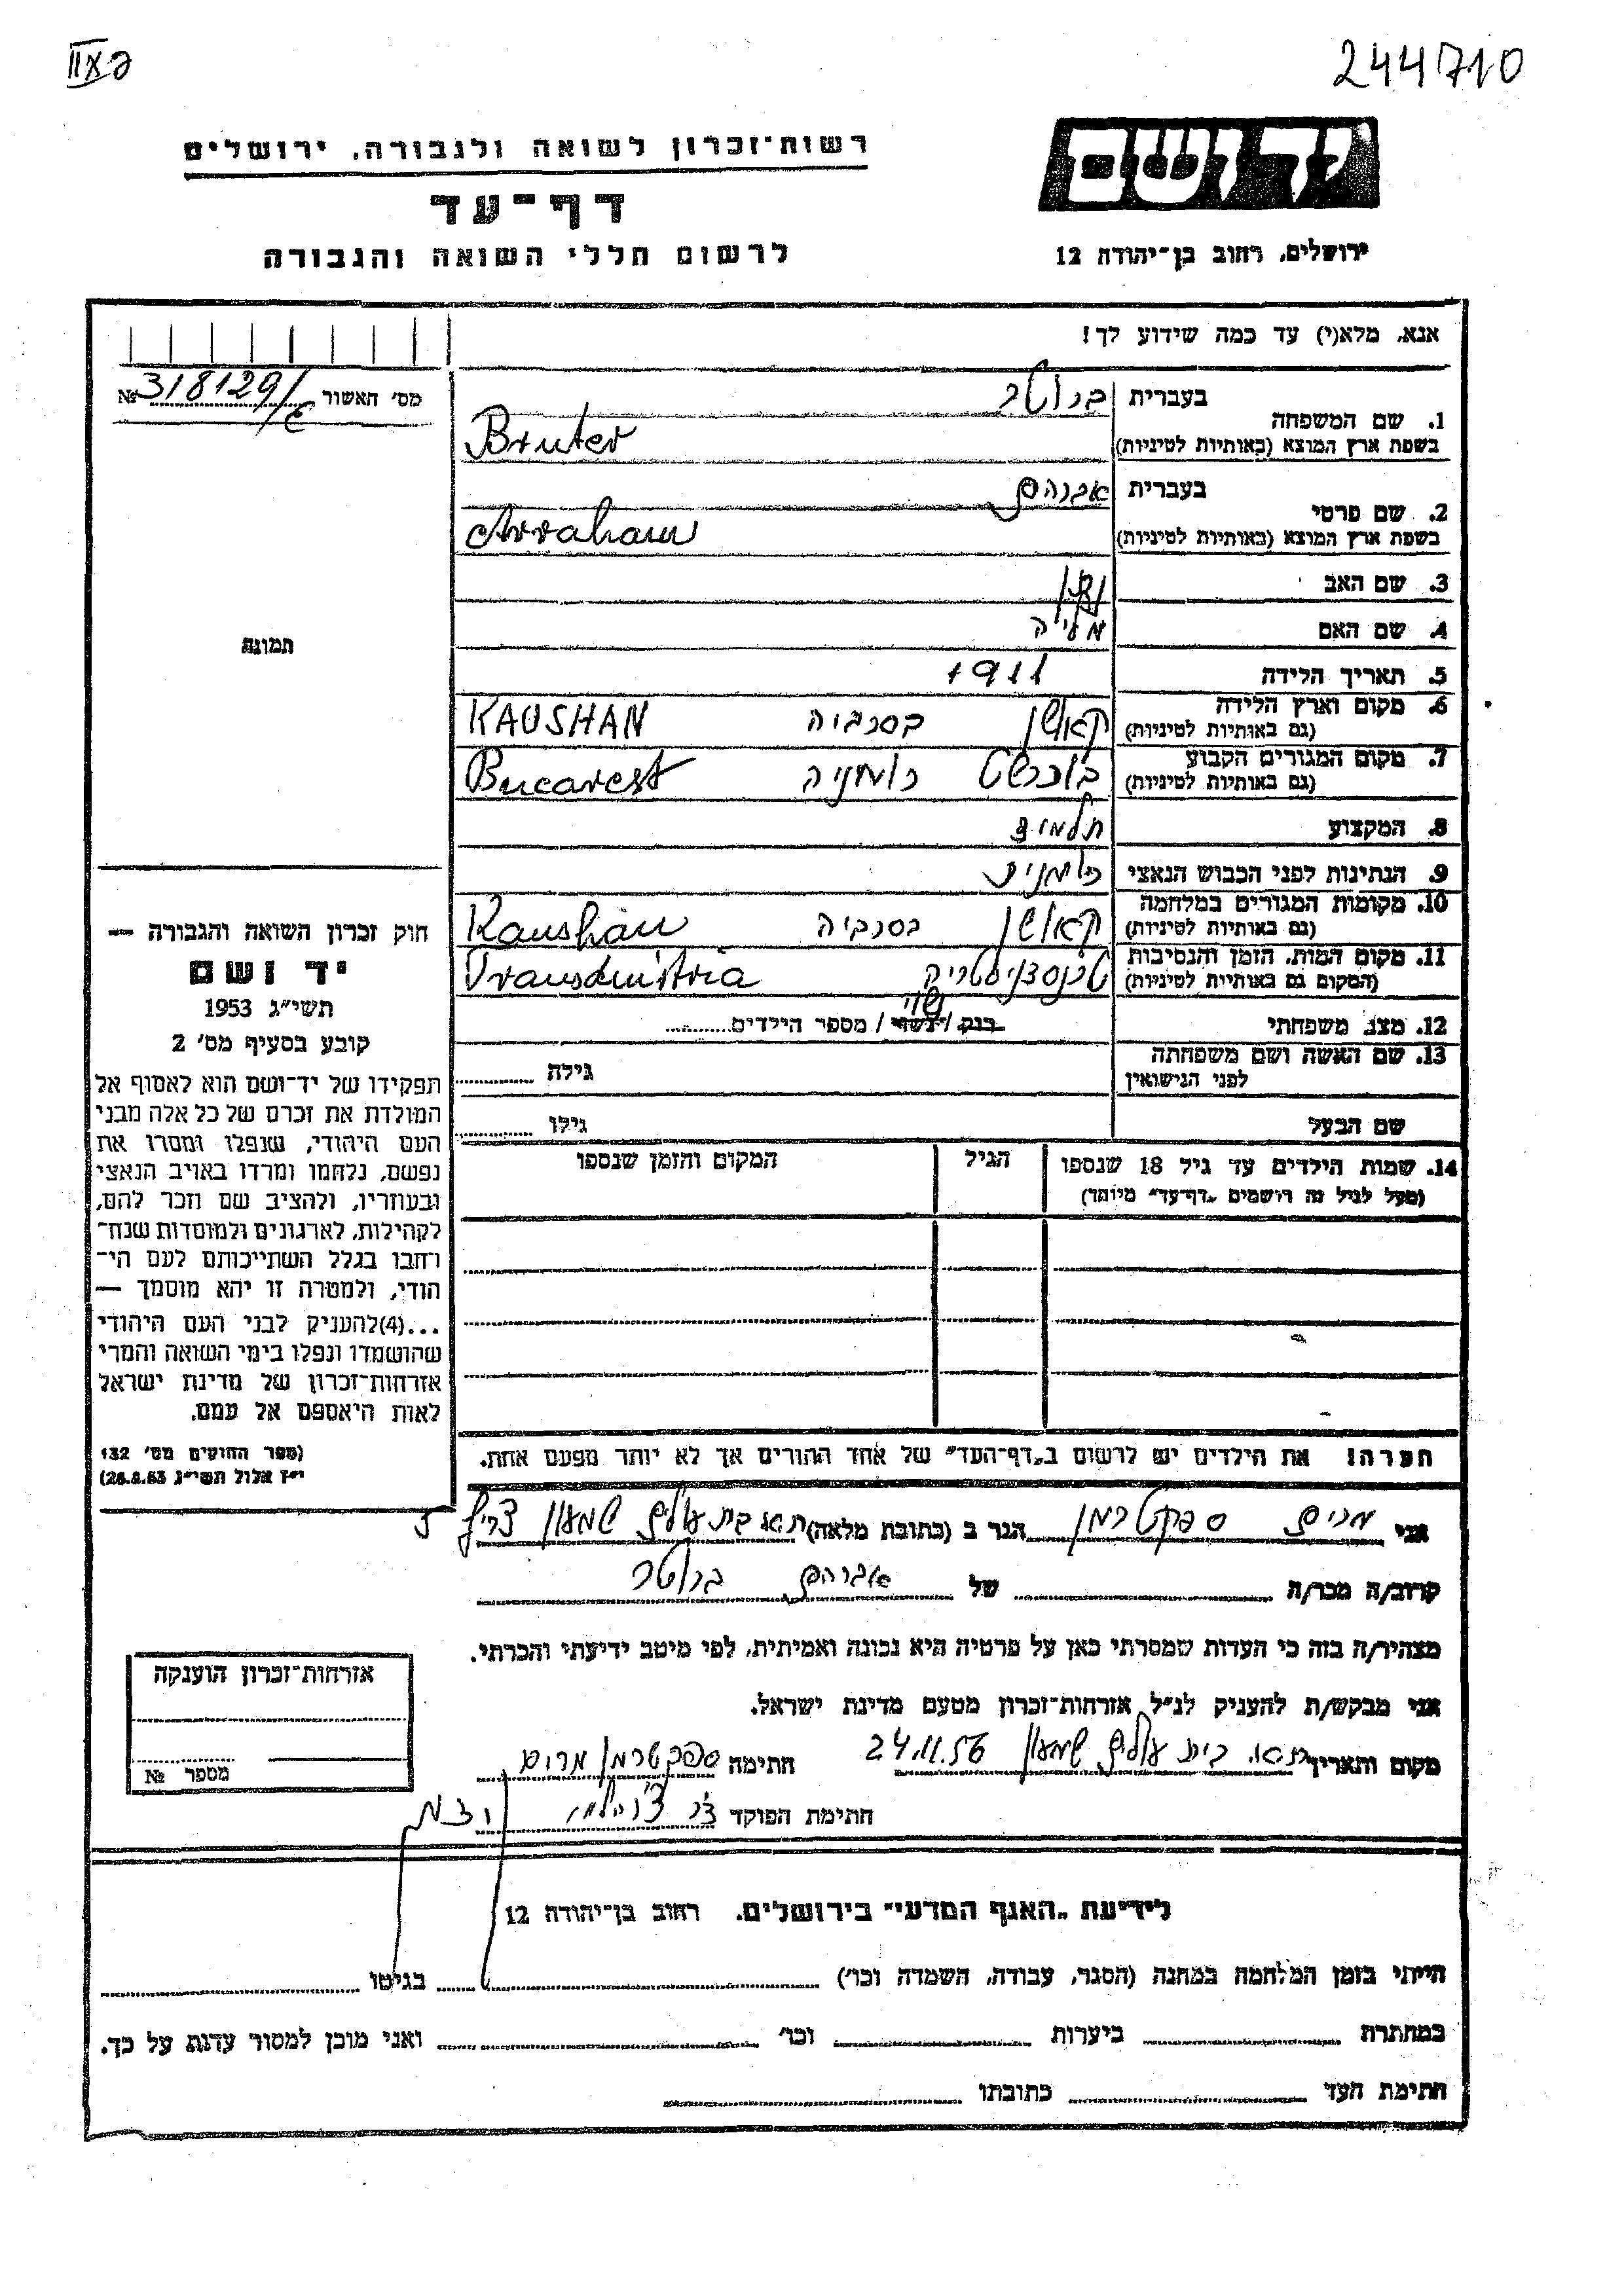 פאII
244710
יד ושם
רשות־זכרון לשואה ולגבורה, ירושלים
דף־עד
לרשום חללי השואה והגבורה
ירושלים, רחוב בן־יהודה 12
אנא, מלא(י) עד כמה שידוע לך!
מס' האשור №318129/
1. שם המשפחה
בעברית ברוטר
בשפת ארץ המוצא (באותיות לטיניות) Bruter
2. שם פרטי
בעברית אברהם
בשפת ארץ המוצא (באותיות לטיניות) Avraham
3. שם האב
4. שם האם
5. תאריך הלידה 1911
6. מקום וארץ הלידה קאושן בסרביה KAUSHAN
(גם באותיות לטיניות)
7. מקום המגורים הקבוע בוכרשט רומניה Bucarest
(גם באותיות לטיניות)
8. המקצוע תלמיד
9. הנתינות לפני הכבוש הנאצי רומנית
10. מקומות המגורים במלחמה קאושן בסרביה Kaushan
(גם באותיות לטיניות)
11. מקום המות, הזמן והנסיבות טרנסדניסטריה Transdnistria
(המקום גם באותיות לטיניות)
12. מצב משפחתי רוק / נשוי / מספר הילדים
13. שם האשה ושם משפחתה
לפני הנישואין
גילה
שם הבעל גילו
14. שמות הילדים עד גיל 18 שנספו
(מעל לגיל זה רושמים „דף־עד" מיוחד)
הגיל
המקום והזמן שנספו
תמונה
חוק זכרון השואה והגבורה —
יד ושם
תשי"ג 1953
קובע בסעיף מס' 2
תפקידו של יד־ושם הוא לאסוף אל
המולדת את זכרם של כל אלה מבני
העם היהודי, שנפלו ומסרו את
נפשם, נלחמו ומרדו באויב הנאצי
ובעוזריו, ולהציב שם וזכר להם,
לקהילות, לארגונים ולמוסדות שנח־
רחבו בגלל השתייכותם לעם הי־
הודי, ולמטרה זו יהא מוסמך —
...(4)להעניק לבני העם היהודי
שהושמדו ונפלו בימי השואה והמרי
אזרחות־זכרון של מדינת ישראל
לאות היאספם אל עמם.
(ספר החוקים מס' 132
י"ז אלול תשי"ג 28.8.53)
הערה! את הילדים יש לרשום ב„דף־העד" של אחד ההורים אך לא יותר מפעם אחת.
אני מרים ספקטרמן הגר ב (כתובת מלאה) ת.א. גבעת עולים שמעון צריף 5
קרוב/ה מכר/ה של אברהם ברוטר
מצהיר/ה בזה כי העדות שמסרתי כאן על פרטיה היא נכונה ואמיתית, לפי מיטב ידיעתי והכרתי.
אני מבקש/ת להעניק לנ"ל אזרחות־זכרון מטעם מדינת ישראל.
מקום ותאריך ת.א. בית עולים שמעון 24.11.56 חתימה ספקטרמן מרים
חתימת הפוקד
אזרחות־זכרון הוענקה
מספר №
לידיעת „האגף המדעי" בירושלים, רחוב בן־יהודה 12
הייתי בזמן המלחמה במחנה (הסגר, עבודה, השמדה וכו') בגיטו
במחתרת ביערות וכו' ואני מוכן למסור עדות על כך.
חתימת העד כתובתו